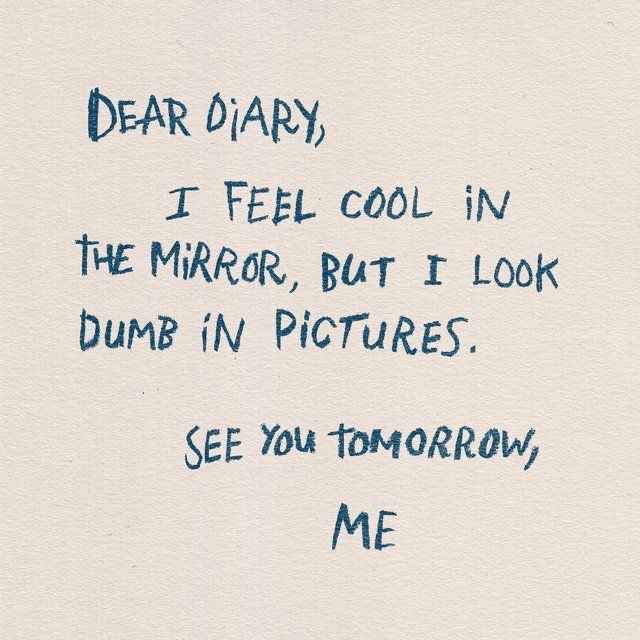 DEAR DiARY,
I FEEL COOL iN
THE MiRROR, BUT I LOOK
DUMB iN PiCTURES.
SEE YOU TOMORROW,
ME